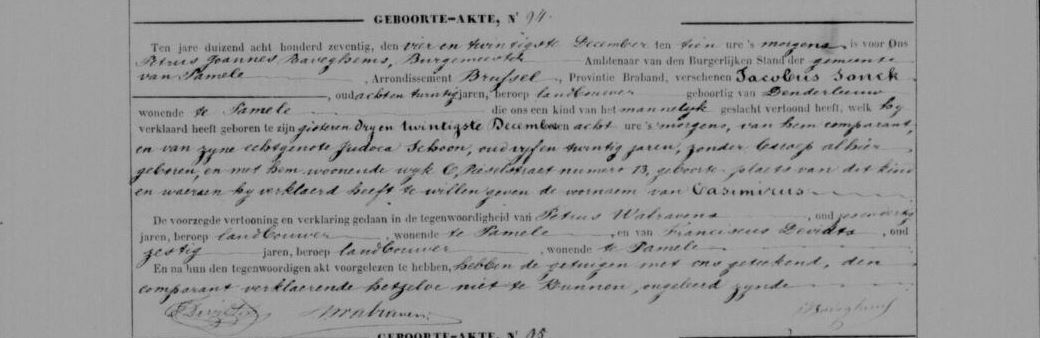 GEBOORTE-AKTE, N° 94.
Ten jare duizend acht honderd zeventig, den vier en twintigste December ten tien ure 's morgens, is voor Ons
Petrus Joannes Baveghems, Burgemeester Ambtenaar van den Burgerlijken Stand der gemeente
van Pamele, Arrondissement Brussel, Provintie Braband, verschenen Jacobus Sonck
, oud achten twintig jaren, beroep landbouwer geboortig van Denderleeuw
wonende te Pamele die ons een kind van het mannelyk geslacht vertoond heeft, welk hy
verklaard heeft geboren te zijn gisteren dry en twintigste December ten acht ure 's morgens, van hem comparant,
en van zyne echtgenote Judoca Schoon, oud vyf en twintig jaren, zonder beroep alhier
geboren, en met hem woonende wyk C, straet numero 13, geboorte plaets van dit kind
en waeraen hy verklaerd heeft te willen geven de voornaem van Casimirus
De voorzegde vertooning en verklaring gedaan in de tegenwoordigheid van Petrus Walravens, oud
jaren, beroep landbouwer, wonende te Pamele, en van Franciscus, oud
zestig jaren, beroep landbouwer, wonende te Pamele
En na hun den tegenwoordigen akt voorgelezen te hebben, hebben de getuigen met ons geteekend, den
comparant verklaerende hetzelve niet te kunnen, ongeleerd zynde
GEBOORTE-AKTE, N° 95.